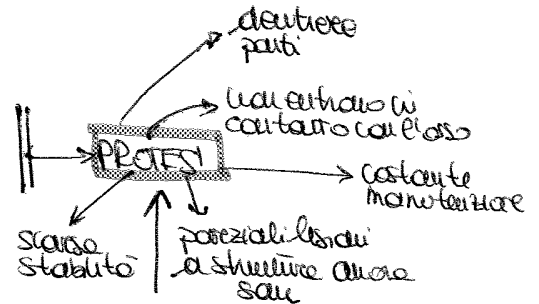 dentiere
ponti
non entrano in
contatto con l'osso
PROTESI
costante
manutenzione
scarsa
stabilità
parziali lesioni
a strutture ancora
sane